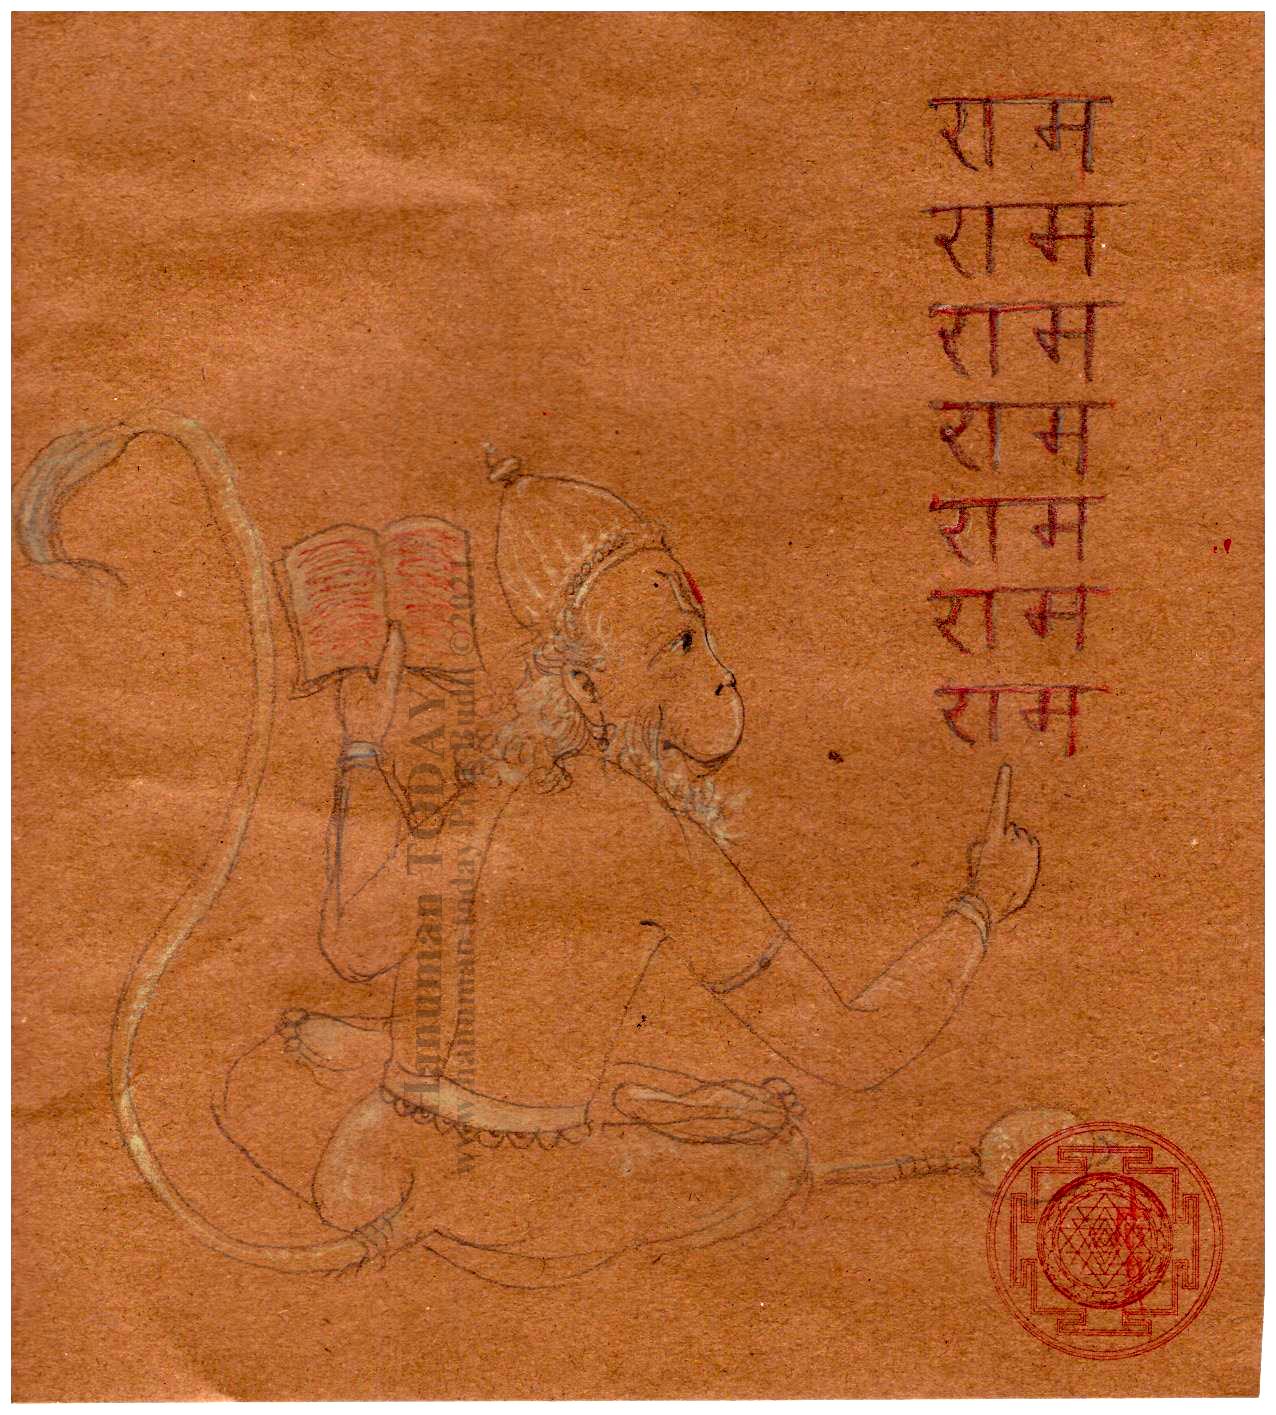 राम
राम
राम
राम
राम
राम
राम
Hanuman TODAY
www.hanuman.today ©2021